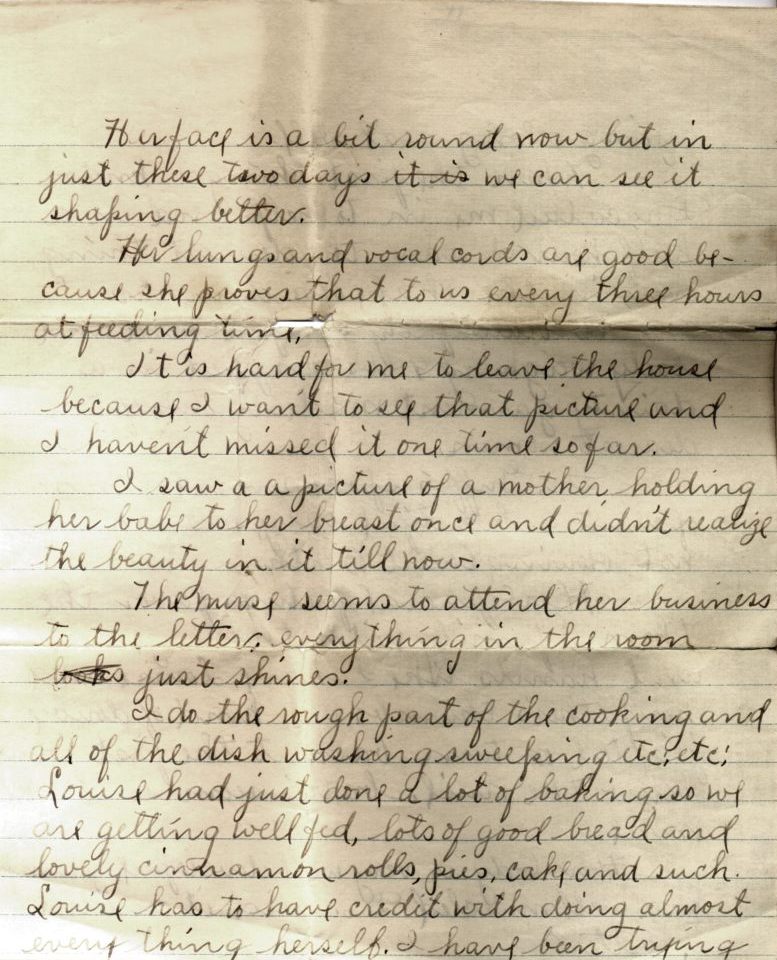 Her face is a bit round now but in
just these two days it is we can see it
shaping better.
Her lungs and vocal cords are good be-
cause she proves that to us every three hours
at feeding time.
It is hard for me to leave the house
because I want to see that picture and
I haven't missed it one time so far.
I saw a a picture of a mother holding
her babe to her breast once and didn't realize
the beauty in it till now.
The nurse seems to attend her business
to the letter. everything in the room
looks just shines.
I do the rough part of the cooking and
all of the dish washing sweeping etc, etc;
Louise had just done a lot of baking so we
are getting well fed, lots of good bread and
lovely cinnamon rolls, pies, cake and such.
Louise has to have credit with doing almost
every thing herself. I have been trying